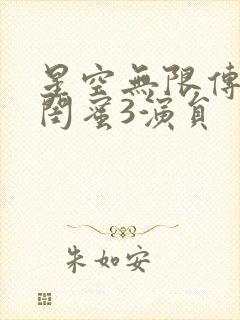 星空無限傳
閨蜜3演員
朱如安